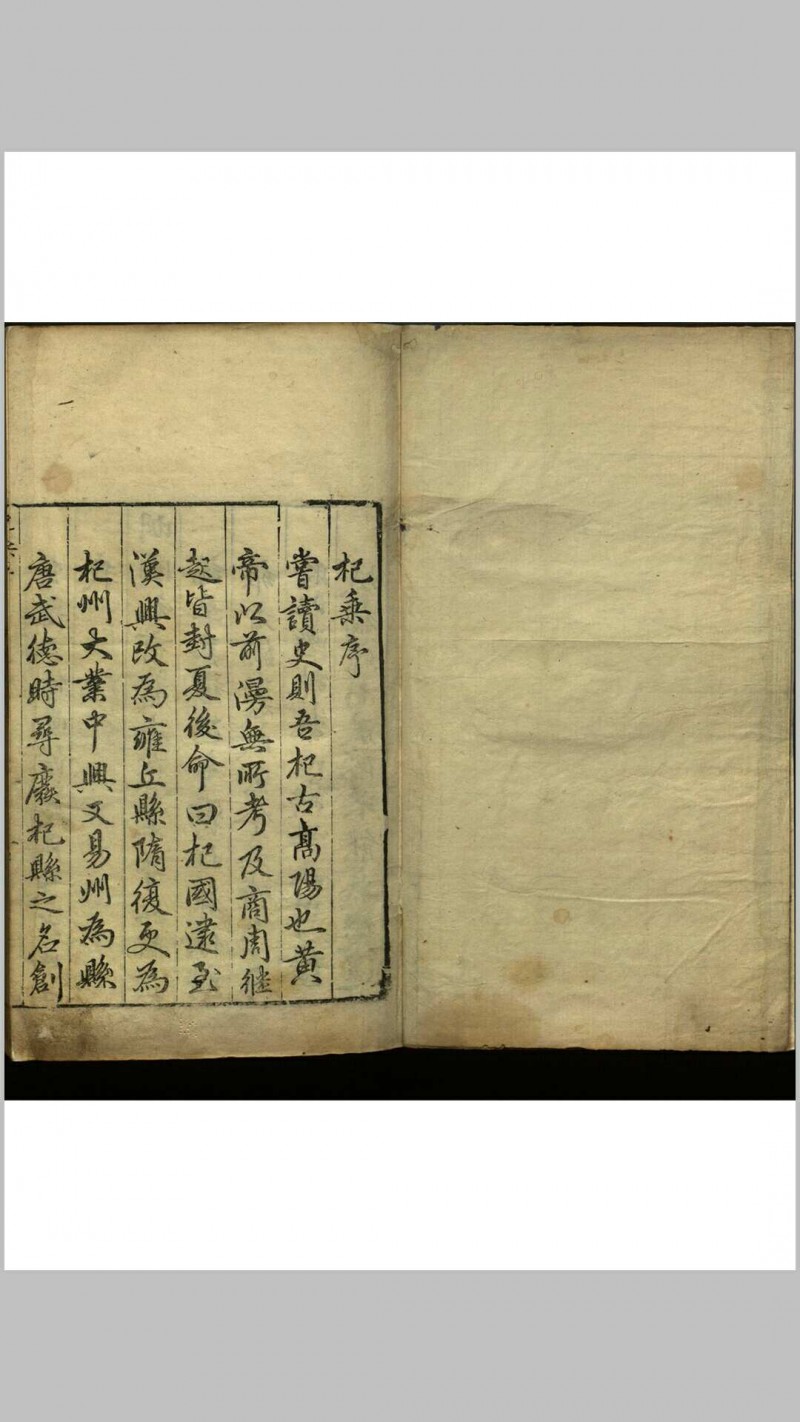 杞乘序
嘗讀史則吾杞古高陽也黃
帝以前漫無所考及商周継
起皆封夏後命曰杞國逮至
漢興改為雍丘縣隋復更為
杞州大業中興又易州為縣
唐武德時尋廢杞縣之名創